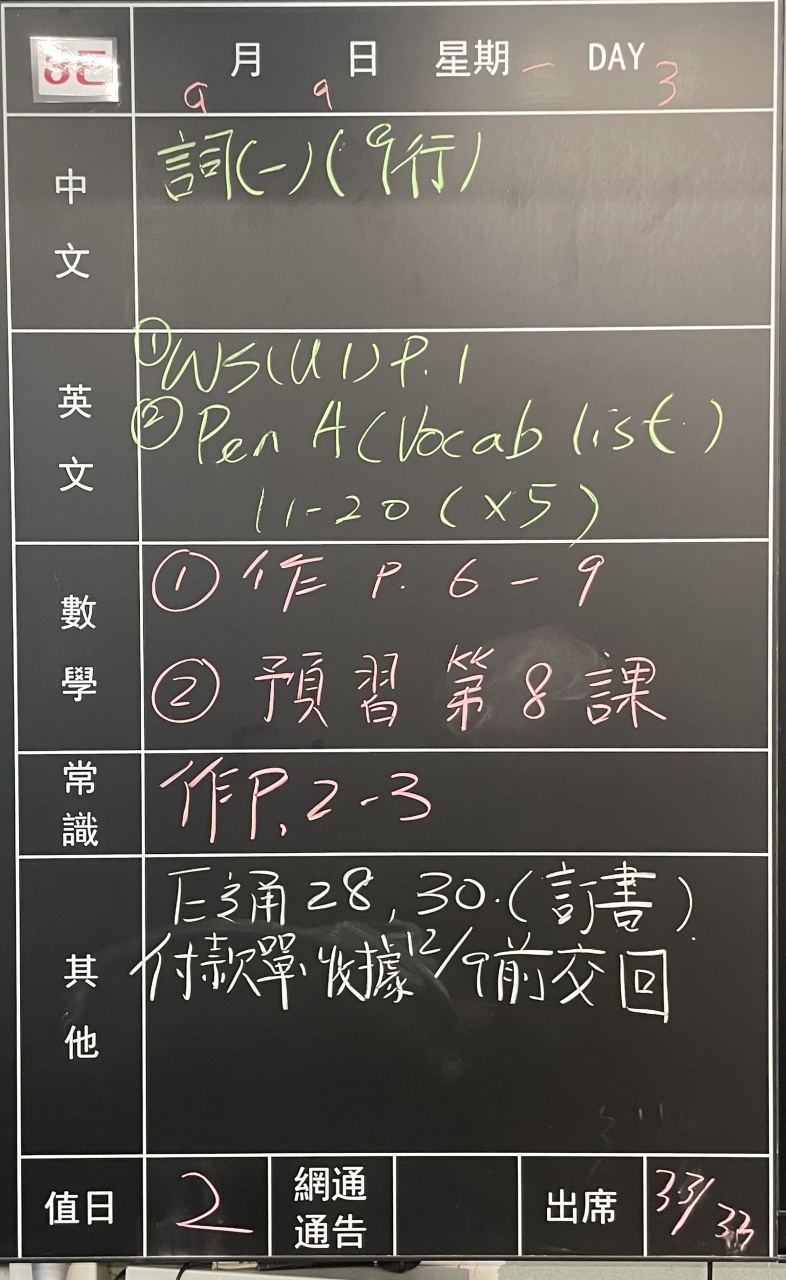 3E
9月 9日 星期一 DAY 3
中文
詞(一)(9行)
英文
① WS(U1) P.1
② Pen A (Vocab list)
11-20 (×5)
數學
① 作 P. 6 - 9
② 預習第8課
常識
作P. 2-3
其他
E通28, 30.(訂書)
付款單收據12/9前交回
值日 2 網通通告 出席 33/33